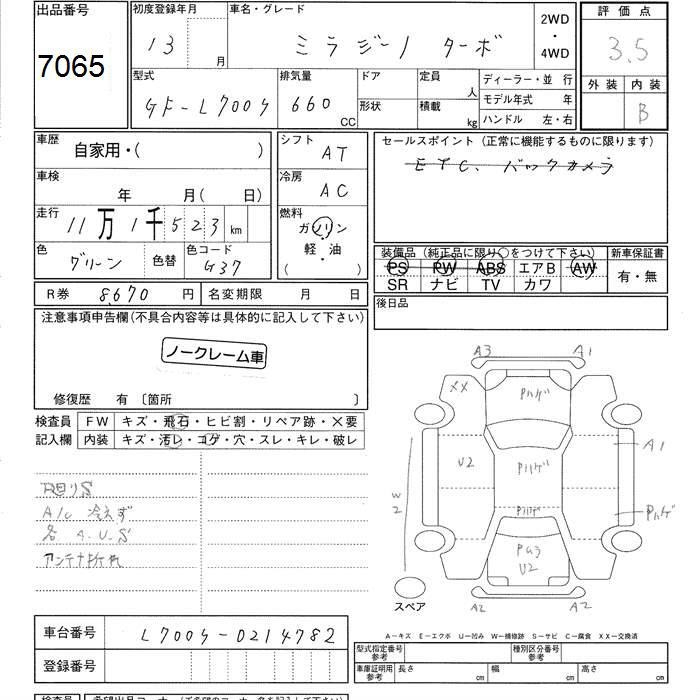 出品番号
7065
初度登録年月
13 月
車名・グレード
ミラジーノ ターボ
2WD
・
4WD
評価点
3.5
外装 内装
B
型式
GF-L700S
排気量
660 CC
ドア
形状
定員 人
積載 kg
ディーラー・並 行
モデル年式 年
ハンドル 左・右
車歴
自家用・( )
シフト
AT
セールスポイント (正常に機能するものに限ります)
ETC. バックカメラ
車検
年 月( 日)
冷房
AC
走行
11万1千523 km
燃料
ガソリン
・
軽・油
( )
色
グリーン
色替
色コード
G37
装備品 (純正品に限り○をつけて下さい)
新車保証書
PS PW ABS エアB AW
SR ナビ TV カワ
有・無
R券 8,670 円
名変期限 月 日
後日品
注意事項申告欄(不具合内容等は具体的に記入して下さい)
ノークレーム車
修復歴 有 〔箇所 〕
検査員
記入欄
FW キズ・飛石・ヒビ割・リペア跡・X要
内装 キズ・汚レ・コゲ・穴・スレ・キレ・破レ
下廻りS
A/C 冷えず
各 A.U.S
アンテナ折れ
A3 A1
XX
Pハゲ
U2
Pハゲ
A1
W2
Pハゲ
Pハゲ
U2
A2 A2
スペア
車台番号
L700S-0214782
登録番号
A-キズ E-エクボ U-凹み W-補修跡 S-サビ C-腐食 XX-交換済
型式指定番号
参考
種別区分番号
参考
車庫証明用
参考
長さ cm
幅 cm
高さ cm